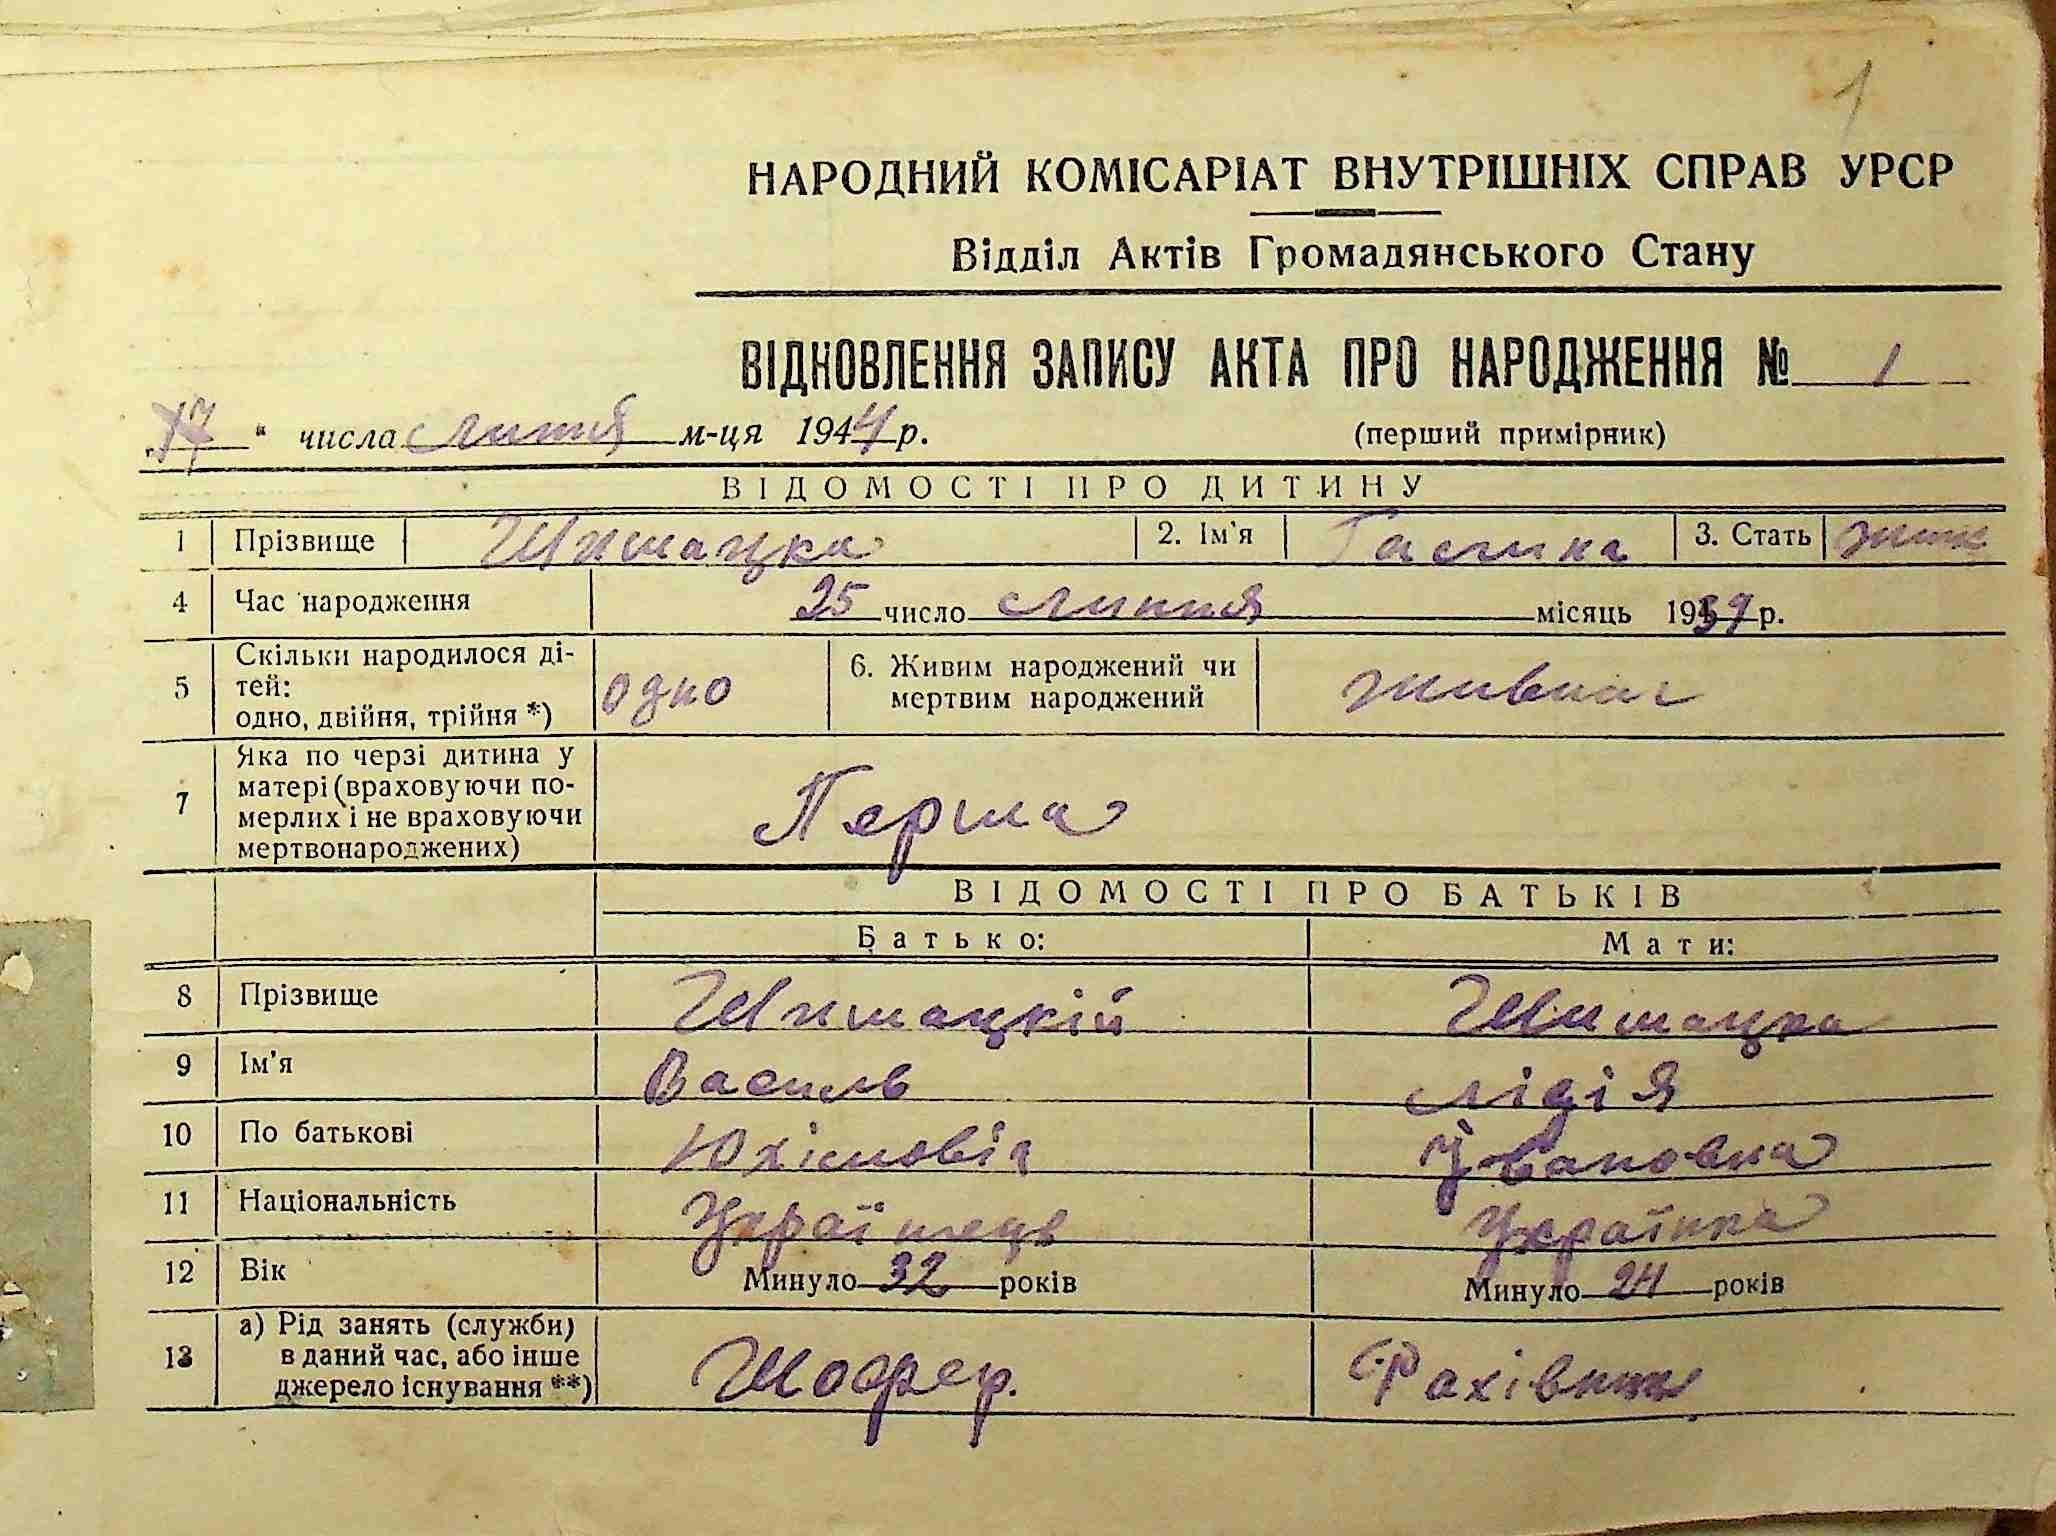 1
НАРОДНИЙ КОМІСАРІАТ ВНУТРІШНІХ СПРАВ УРСР
Відділ Актів Громадянського Стану
ВІДНОВЛЕННЯ ЗАПИСУ АКТА ПРО НАРОДЖЕННЯ № 1
„17“ числа липня м-ця 1944 р. (перший примірник)
ВІДОМОСТІ ПРО ДИТИНУ
1 Прізвище Шишацка 2. Ім'я Галина 3. Стать жін
4 Час народження 25 число липня місяць 1939 р.
5 Скільки народилося ді-
тей:
одно, двійня, трійня *) одно 6. Живим народжений чи
мертвим народжений живим
7 Яка по черзі дитина у
матері (враховуючи по-
мерлих і не враховуючи
мертвонароджених) Перша
ВІДОМОСТІ ПРО БАТЬКІВ
Батько: Мати:
8 Прізвище Шишацкій Шишацка
9 Ім'я Василь Лідія
10 По батькові Юхімовіч Івановна
11 Національність Українець Українка
12 Вік Минуло 32 років Минуло 24 років
13 а) Рід занять (служби)
в даний час, або інше
джерело існування **) Шофер.